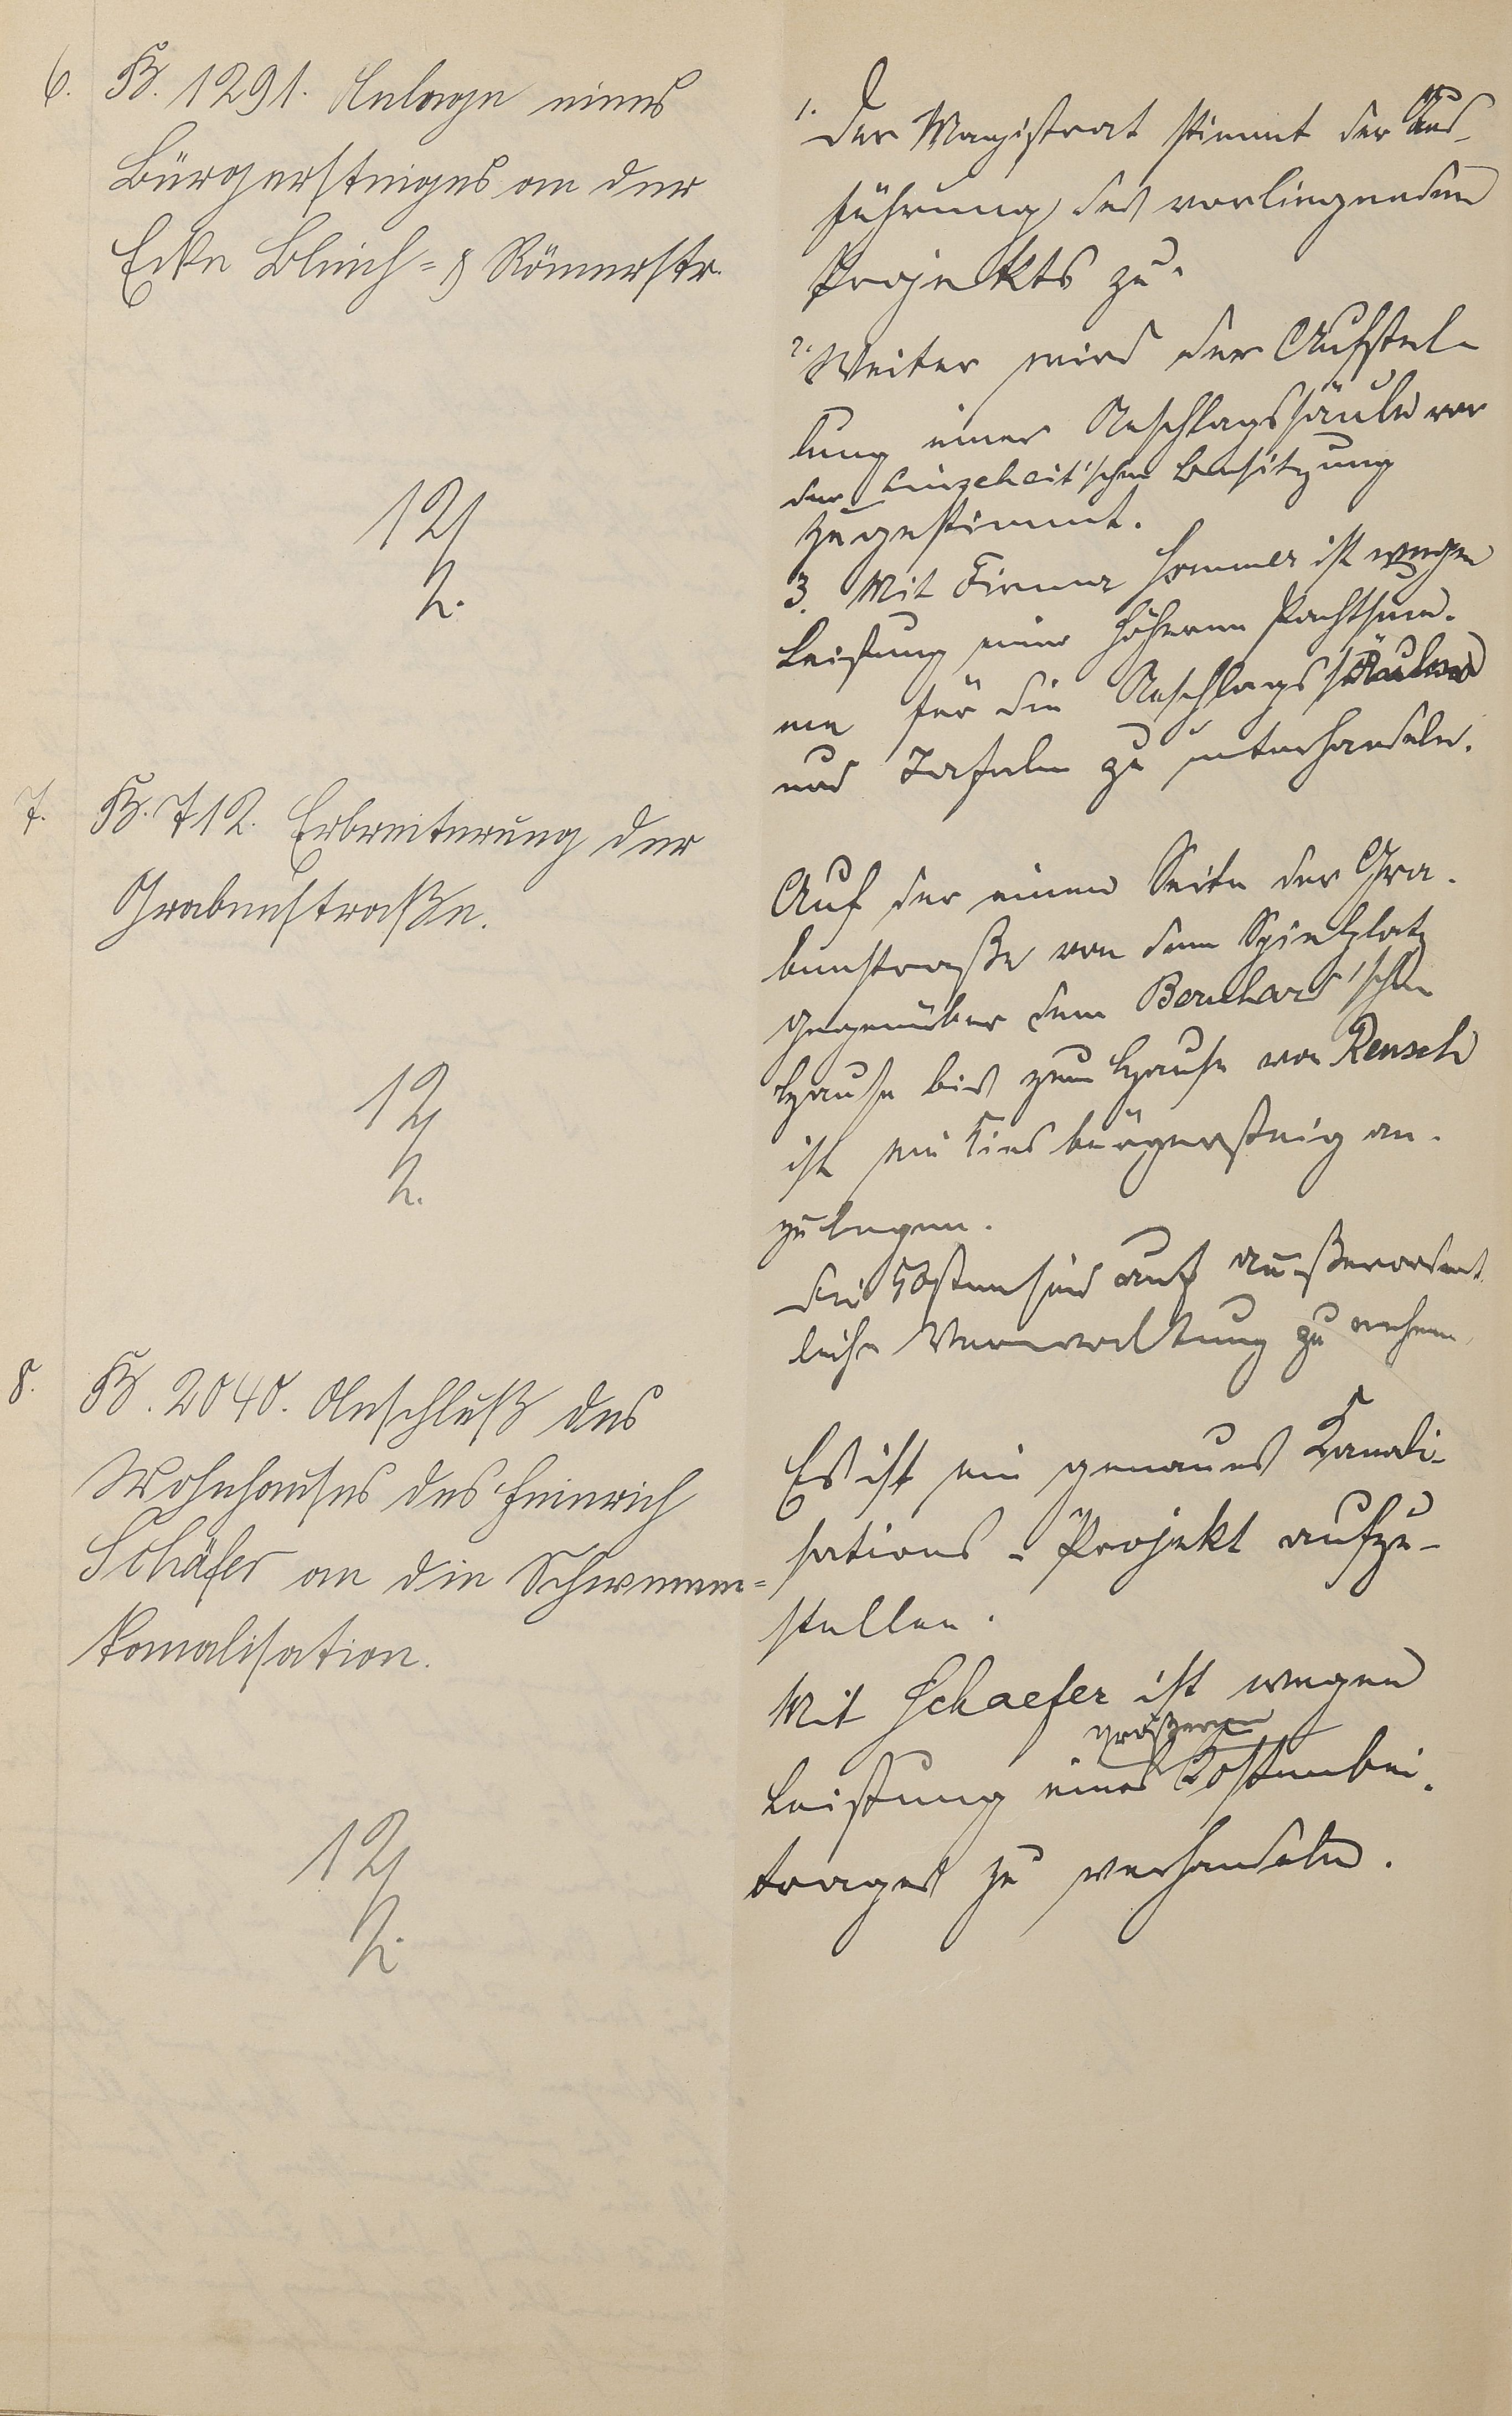 6. B. 1291. Anlage eines
Bürgersteiges an der
Ecke Bleich- & Römerstr.
12/
h.
1. Der Magistrat stimmt der Aus-
führung des vorliegenden
Projekts zu.
2. Weiter wird der Aufstel-
lung einer Anschlagssäule vor
der 'schen Besitzung
zugestimmt.
3. Mit Firma Hommer ist wegen
Leistung einer höheren Pachtsum-
me für die Anschlagssäulen
und Tafeln zu unterhandeln.
7. B. 712. Erbreiterung der
Grabenstraße.
12/
h.
Auf der einen Seite der Gra-
benstraße von dem Spielplatz
gegenüber dem Bernhard'schen
Hause bis zum Hause von Rensch
ist ein Kiesbürgersteig an-
zulegen.
Die Kosten sind auf außerordent-
liche Verwaltung zu nehmen.
8. B. 2040. Anschluß des
Wohnhauses des Heinrich
Schäfer an die Schwemm-
kanalisation.
12/
h.
Es ist ein genaues Kanali-
sations-Projekt aufzu-
stellen.
Mit Schaefer ist wegen
größeren
Leistung eines Kostenbei-
trages zu verhandeln.